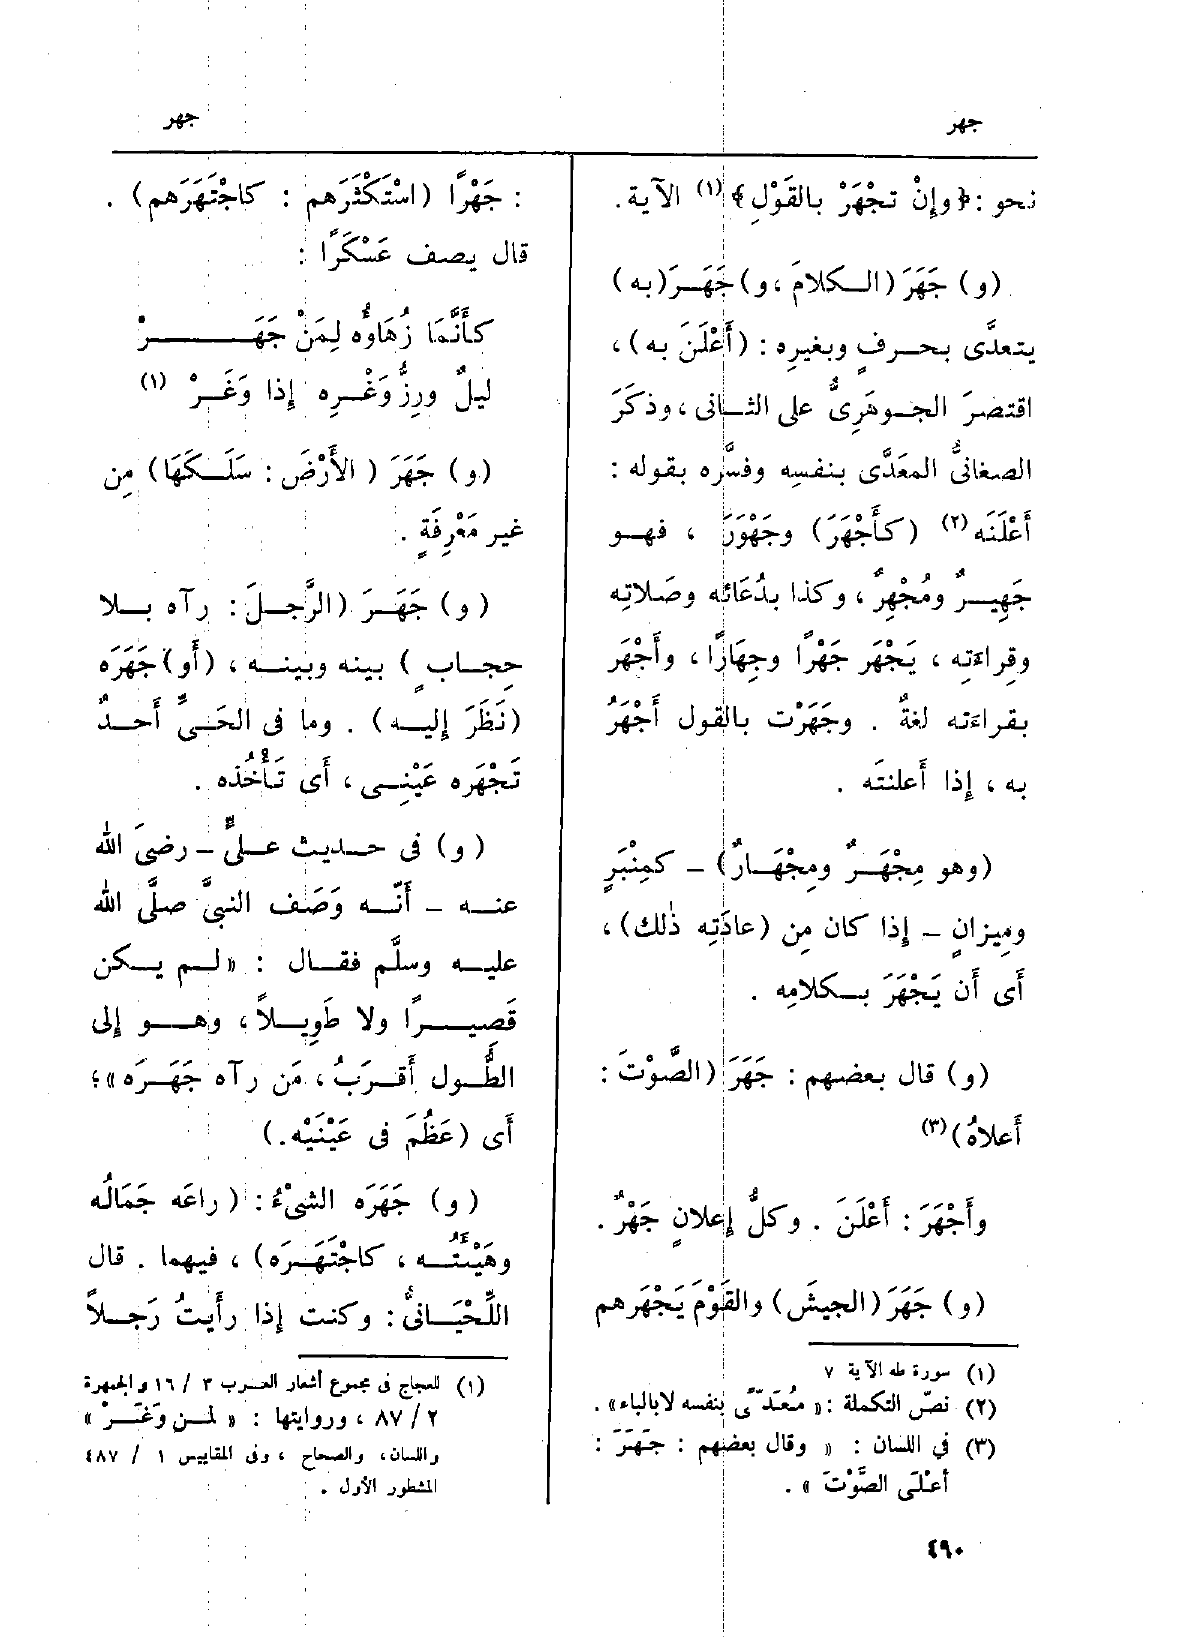 جهر
جهر
نحو : ﴿وإِنْ تجْهَرْ بالقَوْلِ﴾ (١) الآية.
(و) جَهَرَ (الكلامَ ، و) جَهَرَ (به)
يتعدَّى بحرفٍ وبغيرِه : (أَعْلَنَ به) ،
اقتصرَ الجوهَرِىُّ على الثانى ، وذكَرَ
الصغانىُّ المعَدَّى بنفسِه وفسَّره بقوله :
أَعْلَنَه (٢) (كأَجْهَرَ) وجَهْوَرَ ، فهو
جَهِيرٌ ومُجْهِرٌ ، وكذا بدُعَائه وصَلاتِه
وقِراءَتِه ، يَجْهَر جَهْرًا وجِهَارًا ، وأَجْهَر
بقراءَته لغةٌ . وجَهَرْت بالقول أَجْهَرُ
به ، إِذا أَعلنتَه .
(وهو مِجْهَرٌ ومِجْهَارٌ) – كمِنْبَرٍ
ومِيزانٍ – إِذا كان مِن (عادَتِه ذٰلك) ،
أَى أَن يَجْهَرَ بكلامِه .
(و) قال بعضهم : جَهَرَ (الصَّوْتَ :
أَعلاهُ) (٣)
وأَجْهَرَ : أَعْلَنَ . وكلُّ إِعلانٍ جَهْرٌ .
(و) جَهَرَ (الجيشَ) والقَوْمَ يَجْهَرهم
(١) سورة طه الآية ٧
(٢) نصّ التكملة : « مُعَدّىً بنفسه لا بالباء » .
(٣) في اللسان : « وقال بعضهم : جَهَرَ :
أعْلَى الصَّوْتَ » .
: جَهْرًا (اسْتَكْثَرَهم : كاجْتَهَرَهم) .
قال يصف عَسْكَرًا :
كأَنَّمَا زُهَاؤُه لِمَنْ جَهَرْ
ليلٌ ورِزُّ وَغْرِه إِذا وَغَرْ (١)
(و) جَهَرَ (الأَرْضَ : سَلَكَهَا) مِن
غير مَعْرِفَةٍ .
(و) جَهَرَ (الرَّجلَ : رآه بلا
حِجابٍ) بينه وبينه ، (أَو) جَهَرَه
(نَظَرَ إِليه) . وما فى الحَىِّ أَحدٌ
تَجْهَره عَيْنِى ، أَى تَأْخُذه .
(و) فى حديث علىٍّ – رضىَ الله
عنه – أَنّه وَصَف النبىَّ صلَّى الله
عليه وسلَّم فقال : « لم يكن
قَصِيرًا ولا طَوِيلاً ، وهو إِلى
الطُّول أَقربُ ، مَن رآه جَهَرَه » ؛
أَى (عَظُمَ فى عَيْنَيْه .)
(و) جَهَرَه الشىْءُ : (راعَه جَمَالُه
وهَيْئَتُه ، كاجْتَهَرَه) ، فيهما . قال
اللِّحْيَانىُّ : وكنت إِذا رأَيتُ رَجلاً
(١) للعجاج فى مجموع أشعار العرب ٣ / ١٦ والجمهرة
٢ / ٨٧ ، وروايتها : « لمن وَغَرْ »
واللسان، والصحاح ، وفى المقاييس ١ / ٤٨٧
المشطور الأول .
٤٩٠